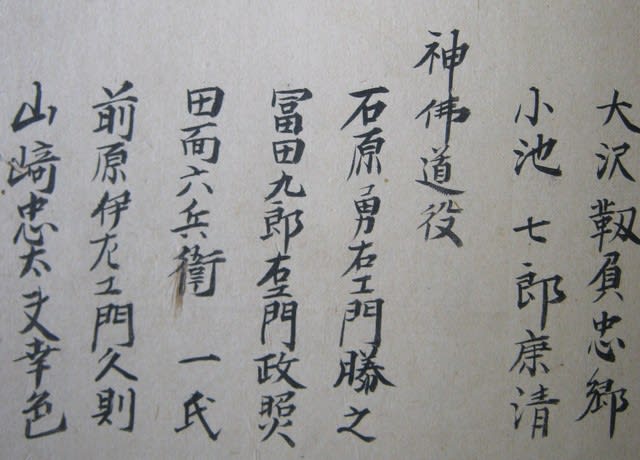 大沢靱負忠郷
小池七郎康清
神佛道役
石原勇右エ門勝之
冨田九郎右エ門政照
田面六兵衛 一氏
前原伊左エ門久則
山﨑忠太夫幸色